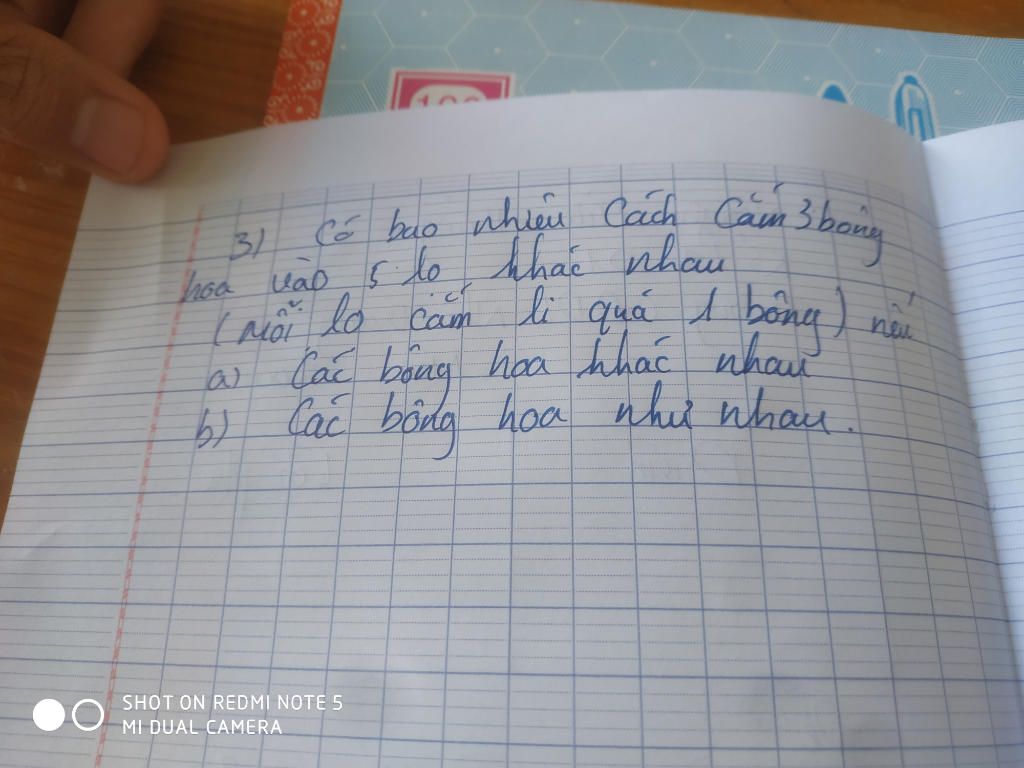 3) Có bao nhiêu Cách Cắm 3 bông
hoa vào 5 lọ khác nhau
(mỗi lọ cắm k quá 1 bông) nếu
a) Các bông hoa khác nhau
b) Các bông hoa như nhau.
SHOT ON REDMI NOTE 5
MI DUAL CAMERA